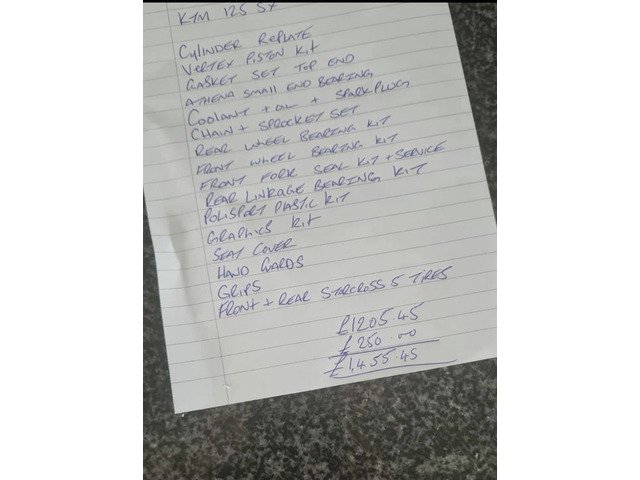 KTM 125 SX
CYLINDER REPLATE
VERTEX PISTON KIT
GASKET SET TOP END
ATHENA SMALL END BEARING
COOLANT + OIL + SPARKPLUG
CHAIN + SPROCKET SET
REAR WHEEL BEARING KIT
FRONT WHEEL BEARING KIT
FRONT FORK SEAL KIT + SERVICE
REAR LINKAGE BEARING KIT
POLISPORT PLASTIC KIT
GRAPHICS KIT
SEAT COVER
HAND GARDS
GRIPS
FRONT + REAR STARCROSS 5 TIRES
£1205.45
£250.00
£1,455.45